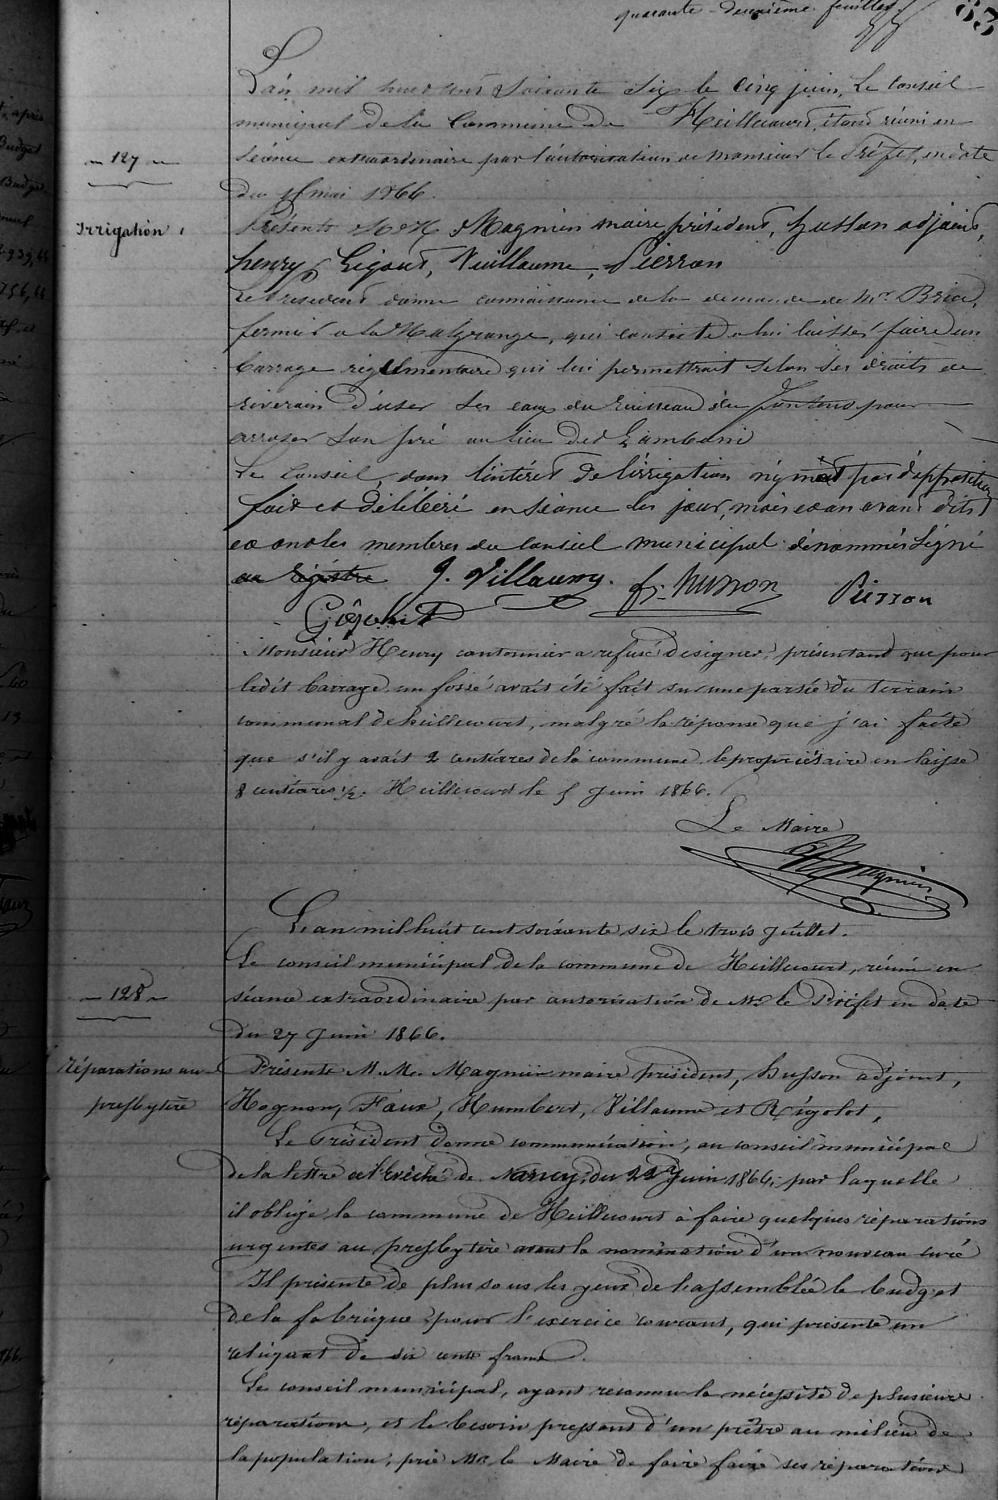 quarante-deuxième feuillet
83
L'an mil huit cent soixante six le cinq juin, Le Conseil
municipal de la Commune de Heillecourt, étant réuni en
- 127 -
séance extraordinaire par l'autorisation de Monsieur le Préfet, en date
du mai 1866.
Irrigation
Présents M M Magnien maire président, husson adjoint,
henry, Gigout, Vuillaume, Pierron
Le Président donne connaissance de la demande de Mr Brice,
fermier à la Malgrange, qui consiste à lui laisser faire un
barrage réglementaire qui lui permettrait selon ses droits de
riverain d'user les eaux du Ruisseau de pour
arroser son pré au lieu dit
Le Conseil, dans l'intérêt de l'irrigation n'y met pas d'opposition
fait et délibéré en séance les jour, mois et an avant dits
et ont les membres du Conseil municipal dénommés Signé
au Régistre J. Villaume. f. husson Pierron
Gigout
Monsieur Henry cantonnier a refusé de signer, présentant que pour
ledit barrage un fossé avait été fait sur une partie du terrain
communal de heillecourt, malgré la réponse que j'ai faite
que s'il y avait 2 centiares de la commune le propriétaire en laisse
8 centiares ½. Heillecourt le 5 Juin 1866.
Le Maire
Magnien
L'an mil huit cent soixante six le trois Juillet.
Le conseil municipal de la commune de Heillecourt, réuni en
- 128 -
séance extraordinaire par autorisation de Mr le Préfet en date
du 27 Juin 1866.
Réparations au
presbytère
Présents M. M. Magnien maire président, husson adjoint,
Hognon, Faux, Humbert, Villaume et Rigolot,
Le Président donne communication, au conseil municipal
de la lettre de l'Evéché de Nancy, du 22 Juin 1866, par laquelle
il oblige la commune de Heillecourt à faire quelques réparations
urgentes au presbytère avant la nomination d'un nouveau curé
Il présente de plus sous les yeux de l'assemblée le budget
de la fabrique pour l'exercice courant, qui présente un
reliquat de six cents francs.
Le conseil municipal, ayant reconnu la nécessité de plusieurs
réparations, et le besoin pressant d'un prêtre au milieu de
la population, prie Mr le Maire de faire faire ses réparations